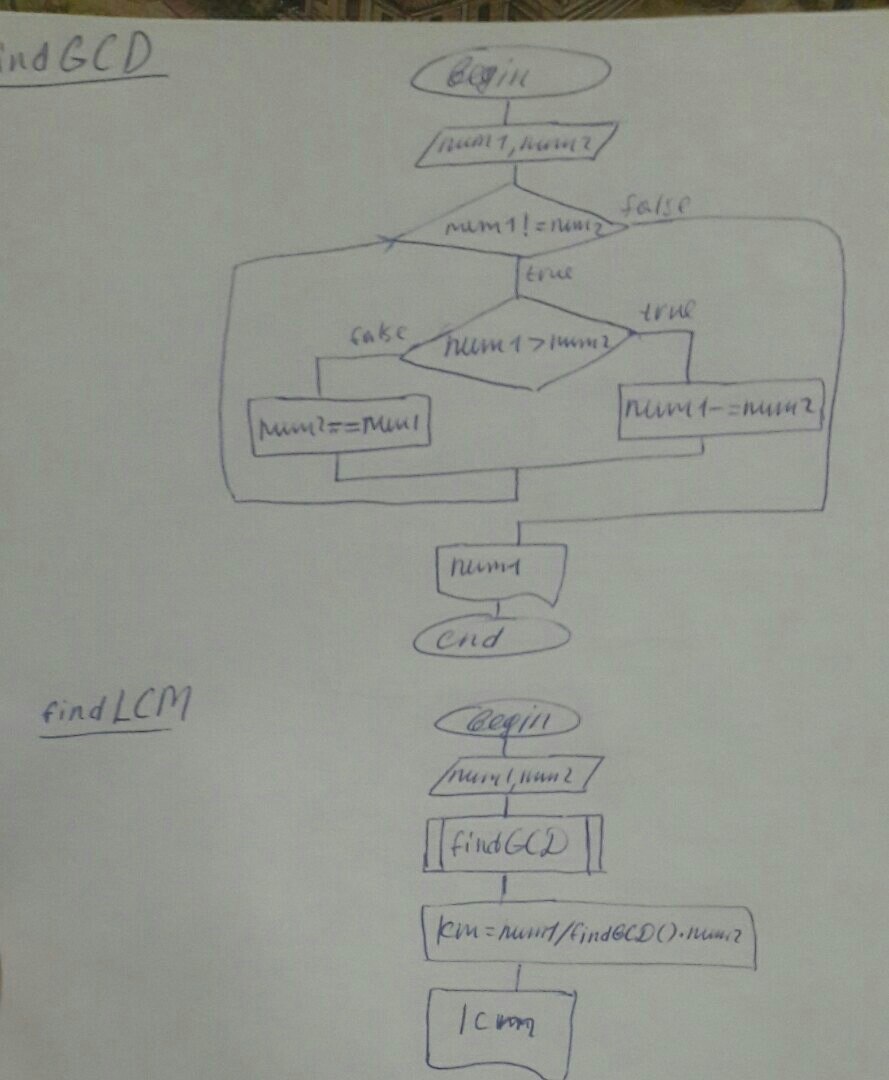 indGCD
Begin
num1, num2
num1!=num2
false
true
num1>num2
false
true
num2==num1
num1-=num2
num1
end
findLCM
Begin
num1, num2
findGCD
lcm=num1/findGCD()·num2
lcm